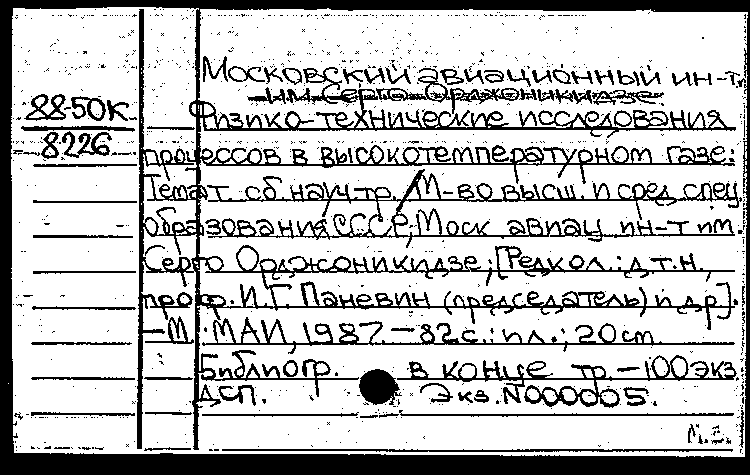 Московский авиационный ин-т.
им. Серго Орджоникидзе
88-50К
Физико-технические исследования
8226
процессов в высокотемпературном газе:
Темат. сб. науч. тр. / М-во высш. и сред. спец.
образования СССР; Моск. авиац. ин-т им.
Серго Орджоникидзе; [Редкол.: д.т.н.,
проф. И.Г. Паневин (председатель) и др].
— М.: МАИ, 1987. — 82с.: ил.; 20см
Библиогр. в конце тр. — 100 экз.
ДСП. Экз. N000005.